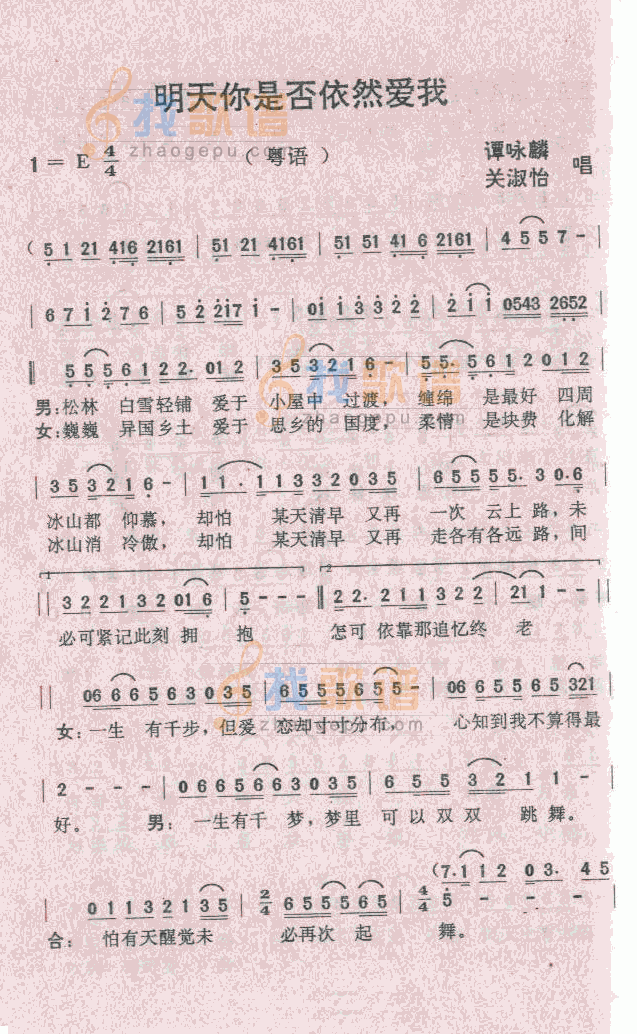 明天你是否依然爱我
找歌谱
zhaogepu.com
1 = E 4/4 （粤语） 谭咏麟 关淑怡 唱
( 5 1 21 416 2161 | 51 21 4161 | 51 51 41 6 2161 | 4 5 5 7 - |
| 6 7 i 2 7 6 | 5 2 2i7 i - | 0i i 3 3 2 2 | 2 i i 0543 2652 |
‖ 5 5 5 6 1 2 2· 01 2 | 3 5 3 2 1 6 - | 5 5· 5 6 1 2 0 1 2 |
男:松林 白雪轻铺 爱于 小屋中 过渡， 缠绵 是最好 四周
女:巍巍 异国乡土 爱于 思乡的 国度， 柔情 是块费 化解
| 3 5 3 2 1 6 - | 1 1 · 1 1 3 3 2 0 3 5 | 6 5 5 5 5· 3 0·6 |
冰山都 仰慕， 却怕 某天清早 又再 一次 云上路，未
冰山消 冷傲， 却怕 某天清早 又再 走各有各远路，间
1 2
‖ 3 2 2 1 3 2 01 6 | 5 - - - ‖ 2 2· 2 1 1 3 2 2 | 21 1 - - |
必可紧记此刻 拥 抱 怎可 依靠那追忆终 老
‖ 06 6 6 5 6 3 0 3 5 | 6 5 5 5 6 5 5 - | 06 6 5 5 6 5 321 |
女:一生 有千步，但爱 恋却寸寸分布， 心知到我不算得最
| 2 - - - | 0 6 6 5 6 6 3 0 3 5 | 6 5 5 3 2 1 1 - |
好。 男: 一生有千 梦，梦里 可以双双 跳舞。
(7·1 1 2 0 3· 4 5
| 0 1 1 3 2 1 3 5 | 2/4 6 5 5 5 6 5 | 4/4 5 - - - |
合: 怕有天醒觉未 必再次 起 舞。